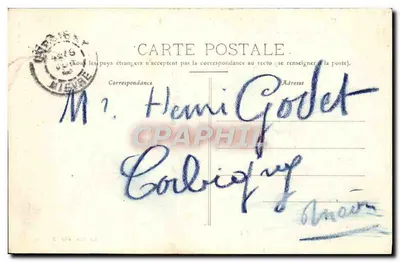 CARTE POSTALE
Tous les pays étrangers n'acceptent pas la correspondance au recto (se renseigner à la poste).
Correspondance
Adresse
NIEVRE
Mr Henri Godet
CPARAMA
Corbigny